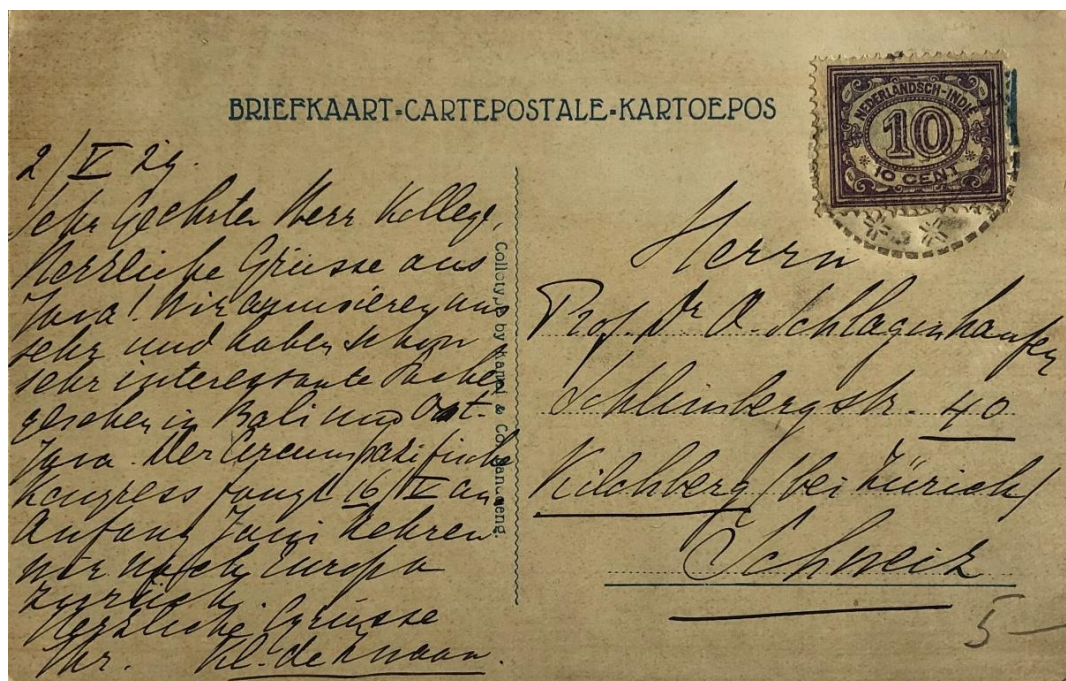 BRIEFKAART-CARTEPOSTALE-KARTOEPOS
NEDERLANDSCH-INDIE
10
10 CENT
2/V 29.
Sehr Geehrter Herr Kollege,
Herrliche Grüsse aus
Java! Wir amusieren uns
sehr und haben schon
sehr interessante Sachen
gesehen in Bali und Ost-
Java. Der Circumpazifische
Kongress fangt 16/V an
Anfang Juni kehren
wir nach Europa
zurück.
Herzliche Grüsse
Ihr.
Collotype by & Co. Bandoeng.
Herrn
Prof. Dr O. Schlaginhaufen
Schlimbergstr. 40
Kilchberg (bei Zürich)
Schweiz
5-